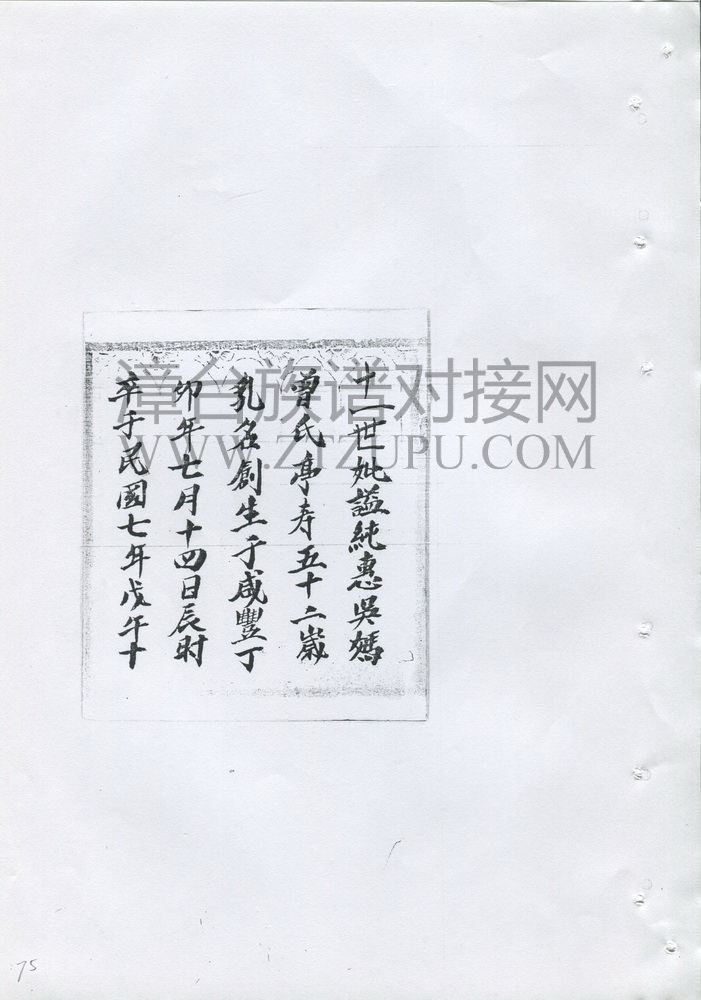 十一世妣謚純惠吳媽
曾氏亭寿五十二嵗
乳名創生于咸豐丁
卯年七月十四日辰时
卒于民國七年戊午十
漳台族谱对接网
WWW.ZTZUPU.COM
75